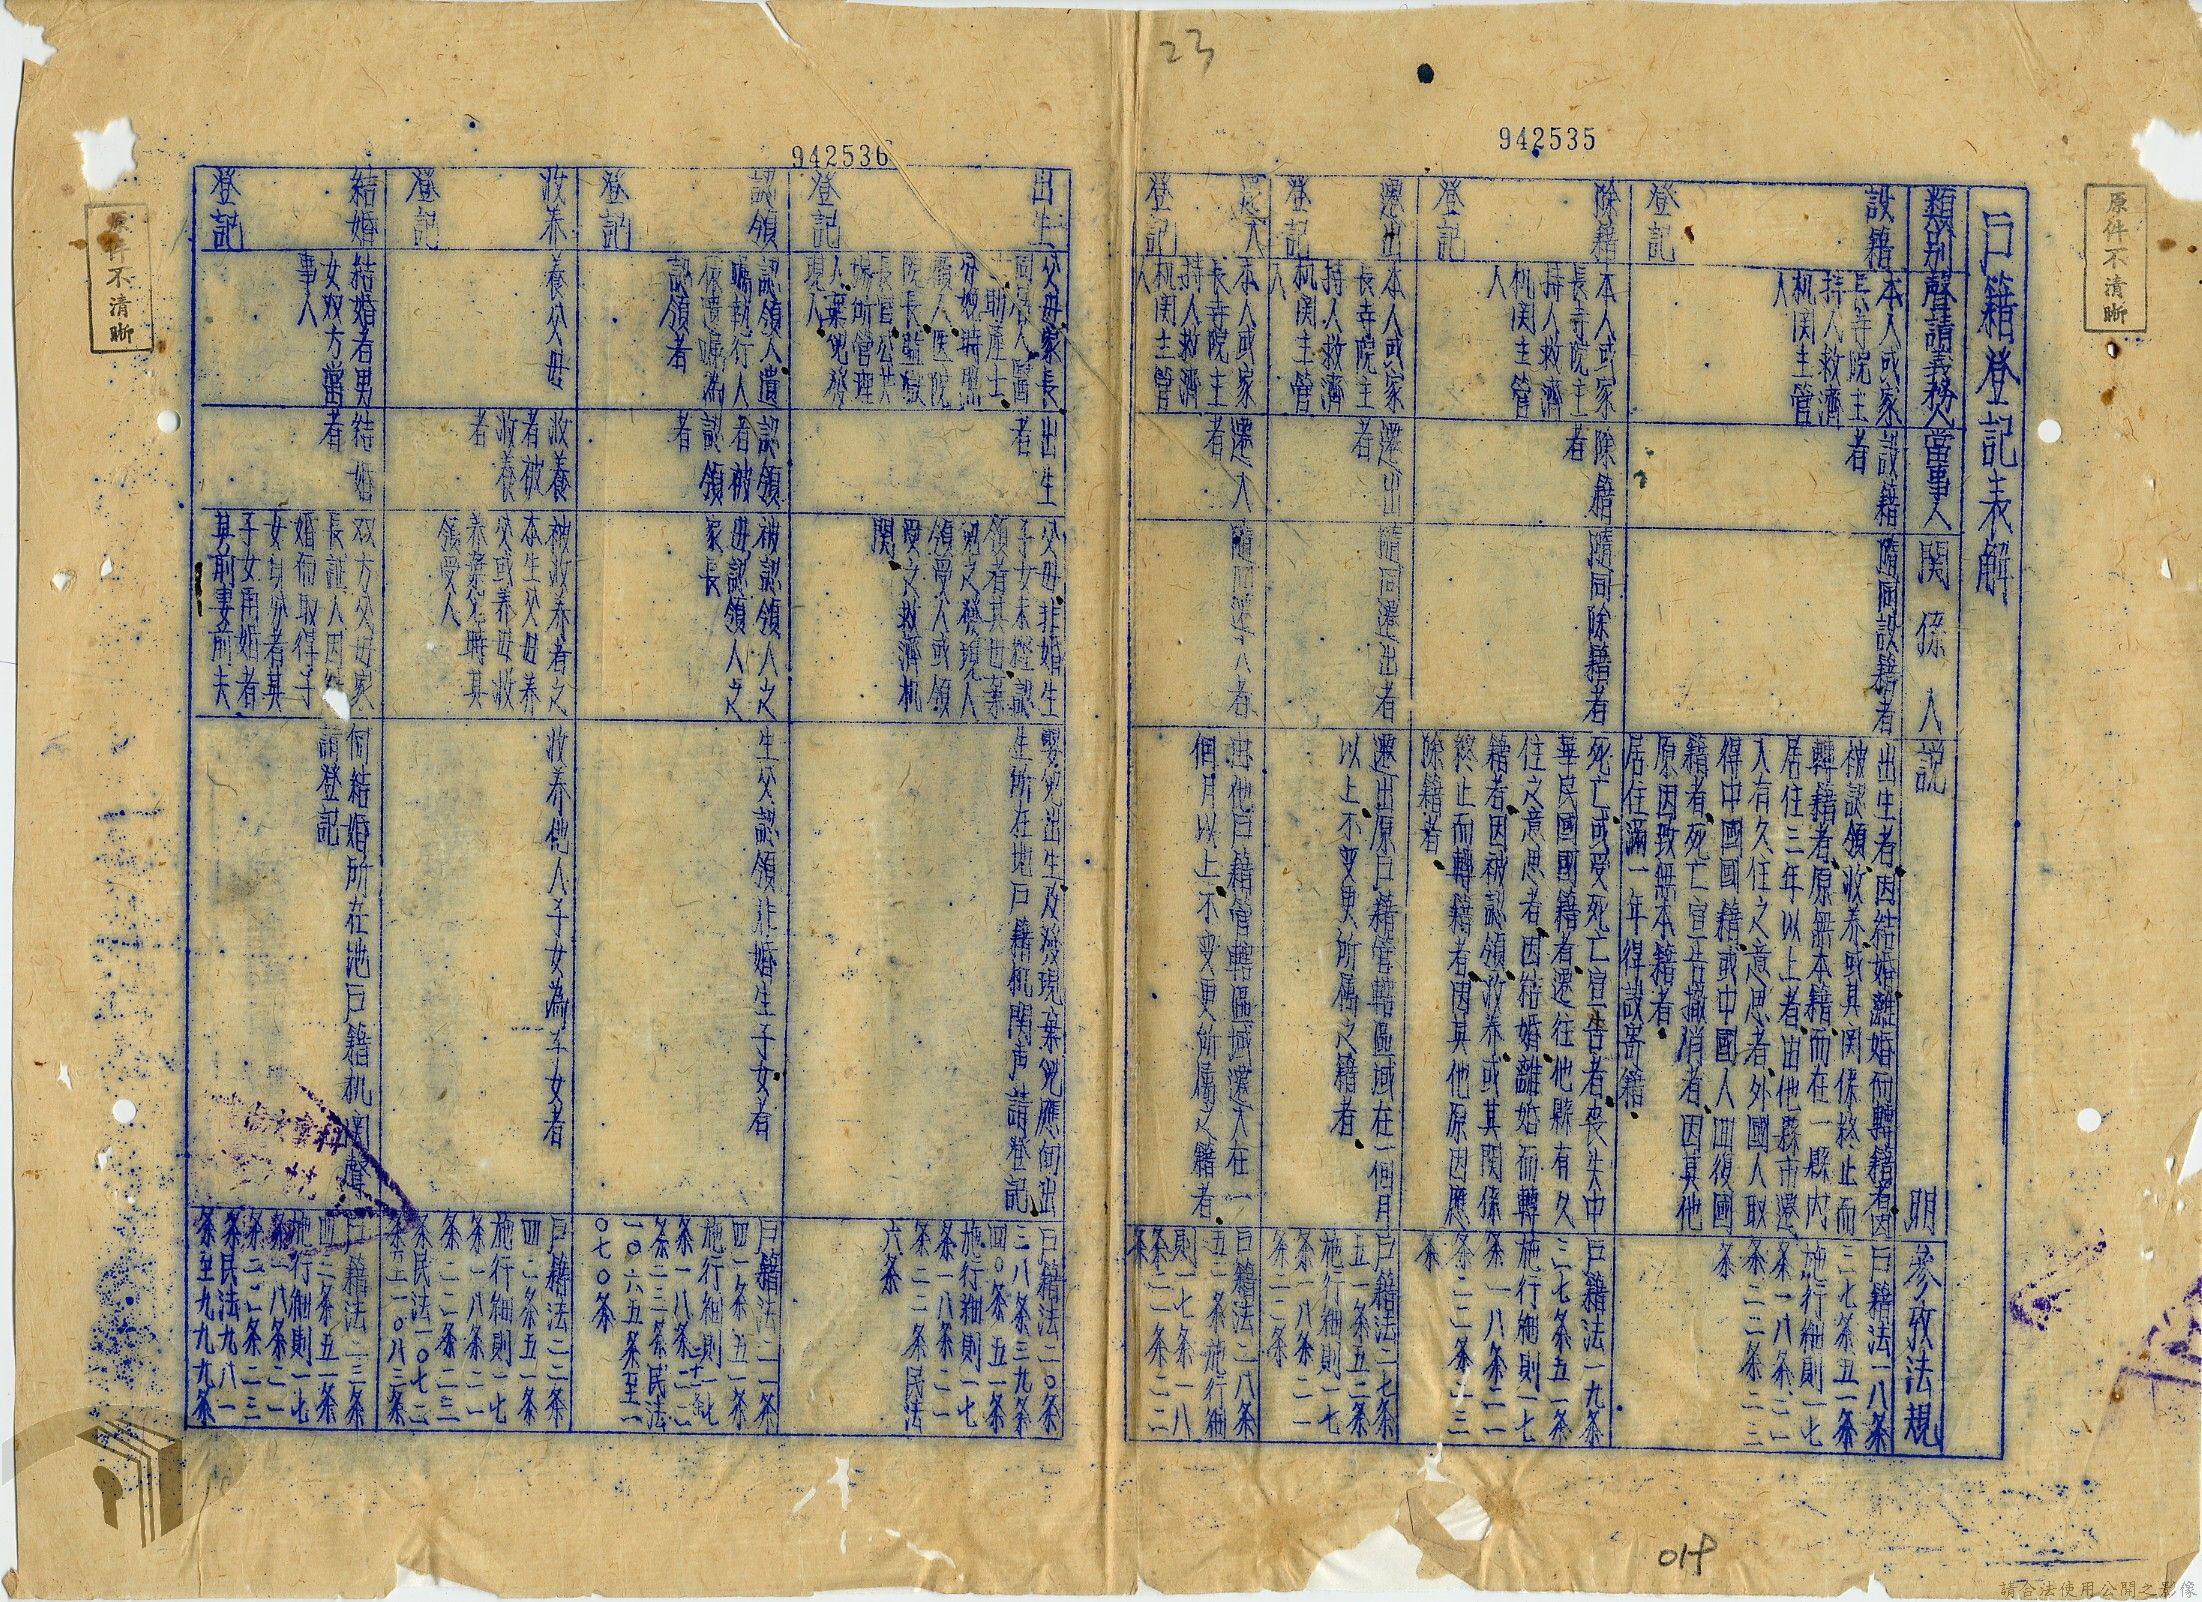 23
942535
942536
原件不清晰
原件不清晰
戶籍登記表解
類別
聲請義務人
當事人
関係人
說明
參攷法規
設籍
登記
本人或家
長寺院主
持人救濟
机関主管
人
設籍
者
隨同設籍者
出生者因結婚離婚而轉籍者因
被認領收养或其関係終止而
轉籍者原無本籍而在一縣內
居住三年以上者由他縣市遷
入有久住之意思者外國人取
得中國國籍或中國人回復國
籍者死亡宣告撤消者因其他
原因致無本籍者
居住滿一年得設寄籍
戶籍法一八条
三七条五一条
施行細則一七
条一八条二一
条二二条二三
条
除籍
登記
本人或家
長寺院主
持人救濟
机関主管
人
除籍
者
隨同除籍者
死亡或受死亡宣告者喪失中
華民國國籍者遷往他縣有久
住之意思者因結婚離婚而轉
籍者因被認領收养或其関係
終止而轉籍者因其他原因應
除籍者
戶籍法一九条
三七条五一条
施行細則一七
条一八条二一
条二二条二三
条
遷出
登記
本人或家
長寺院主
持人救濟
机関主管
人
遷出
者
隨同遷出者
遷出原戶籍管轄區域在一個月
以上不变更所屬之籍者
戶籍法二七条
五一条五二条
施行細則一七
条一八条二一
条二二条
遷入
登記
本人或家
長寺院主
持人救濟
机関主管
人
遷入
者
隨同遷入者
由他戶籍管轄區域遷入在一
個月以上不变更所屬之籍者
戶籍法二八条
五二条施行細
則一七条一八
条二一条二二
条
出生
登記
父母家長
同居人醫
士助產士
分娩時臨
視人医院
院長監獄
長官公共
場所管理
人棄兒發
現人
出生
者
父母非婚生
子女未經認
領者其母棄
兒之發現人
領受人或領
受之救濟机
関
嬰兒出生及發現棄兒應向出
生所在地戶籍机関声請登記
戶籍法二〇条
三八条三九条
四〇条五一条
施行細則一七
条一八条二一
条二二条民法
六条
認領
登記
認領人遺
囑執行人
依遺囑為
認領者
認領
者被
認領
者
被認領人之
母認領人之
家長
生父認領非婚生子女者
戶籍法二一条
四一条五一条
施行細則一七
条一八条二一
条二三条民法
一〇六五条至一
〇七〇条
收养
登記
養父母
收養
者被
收養
者
被收养者之
本生父母养
父或养母收
养棄兒時其
領受人
收养他人子女為子女者
戶籍法二二条
四二条五一条
施行細則一七
条一八条二一
条二二条二三
条民法一〇七二
条至一〇八三条
結婚
登記
結婚者男
女双方當
事人
結婚
者
双方父母家
長証人因結
婚而取得子
女身份者其
子女再婚者
其前妻前夫
向結婚所在地戶籍机関聲
請登記
戶籍法二三条
四二条五一条
施行細則一七
条一八条二一
条二二条二三
条民法九八一
条至九九九条
018
請合法使用公開之影像